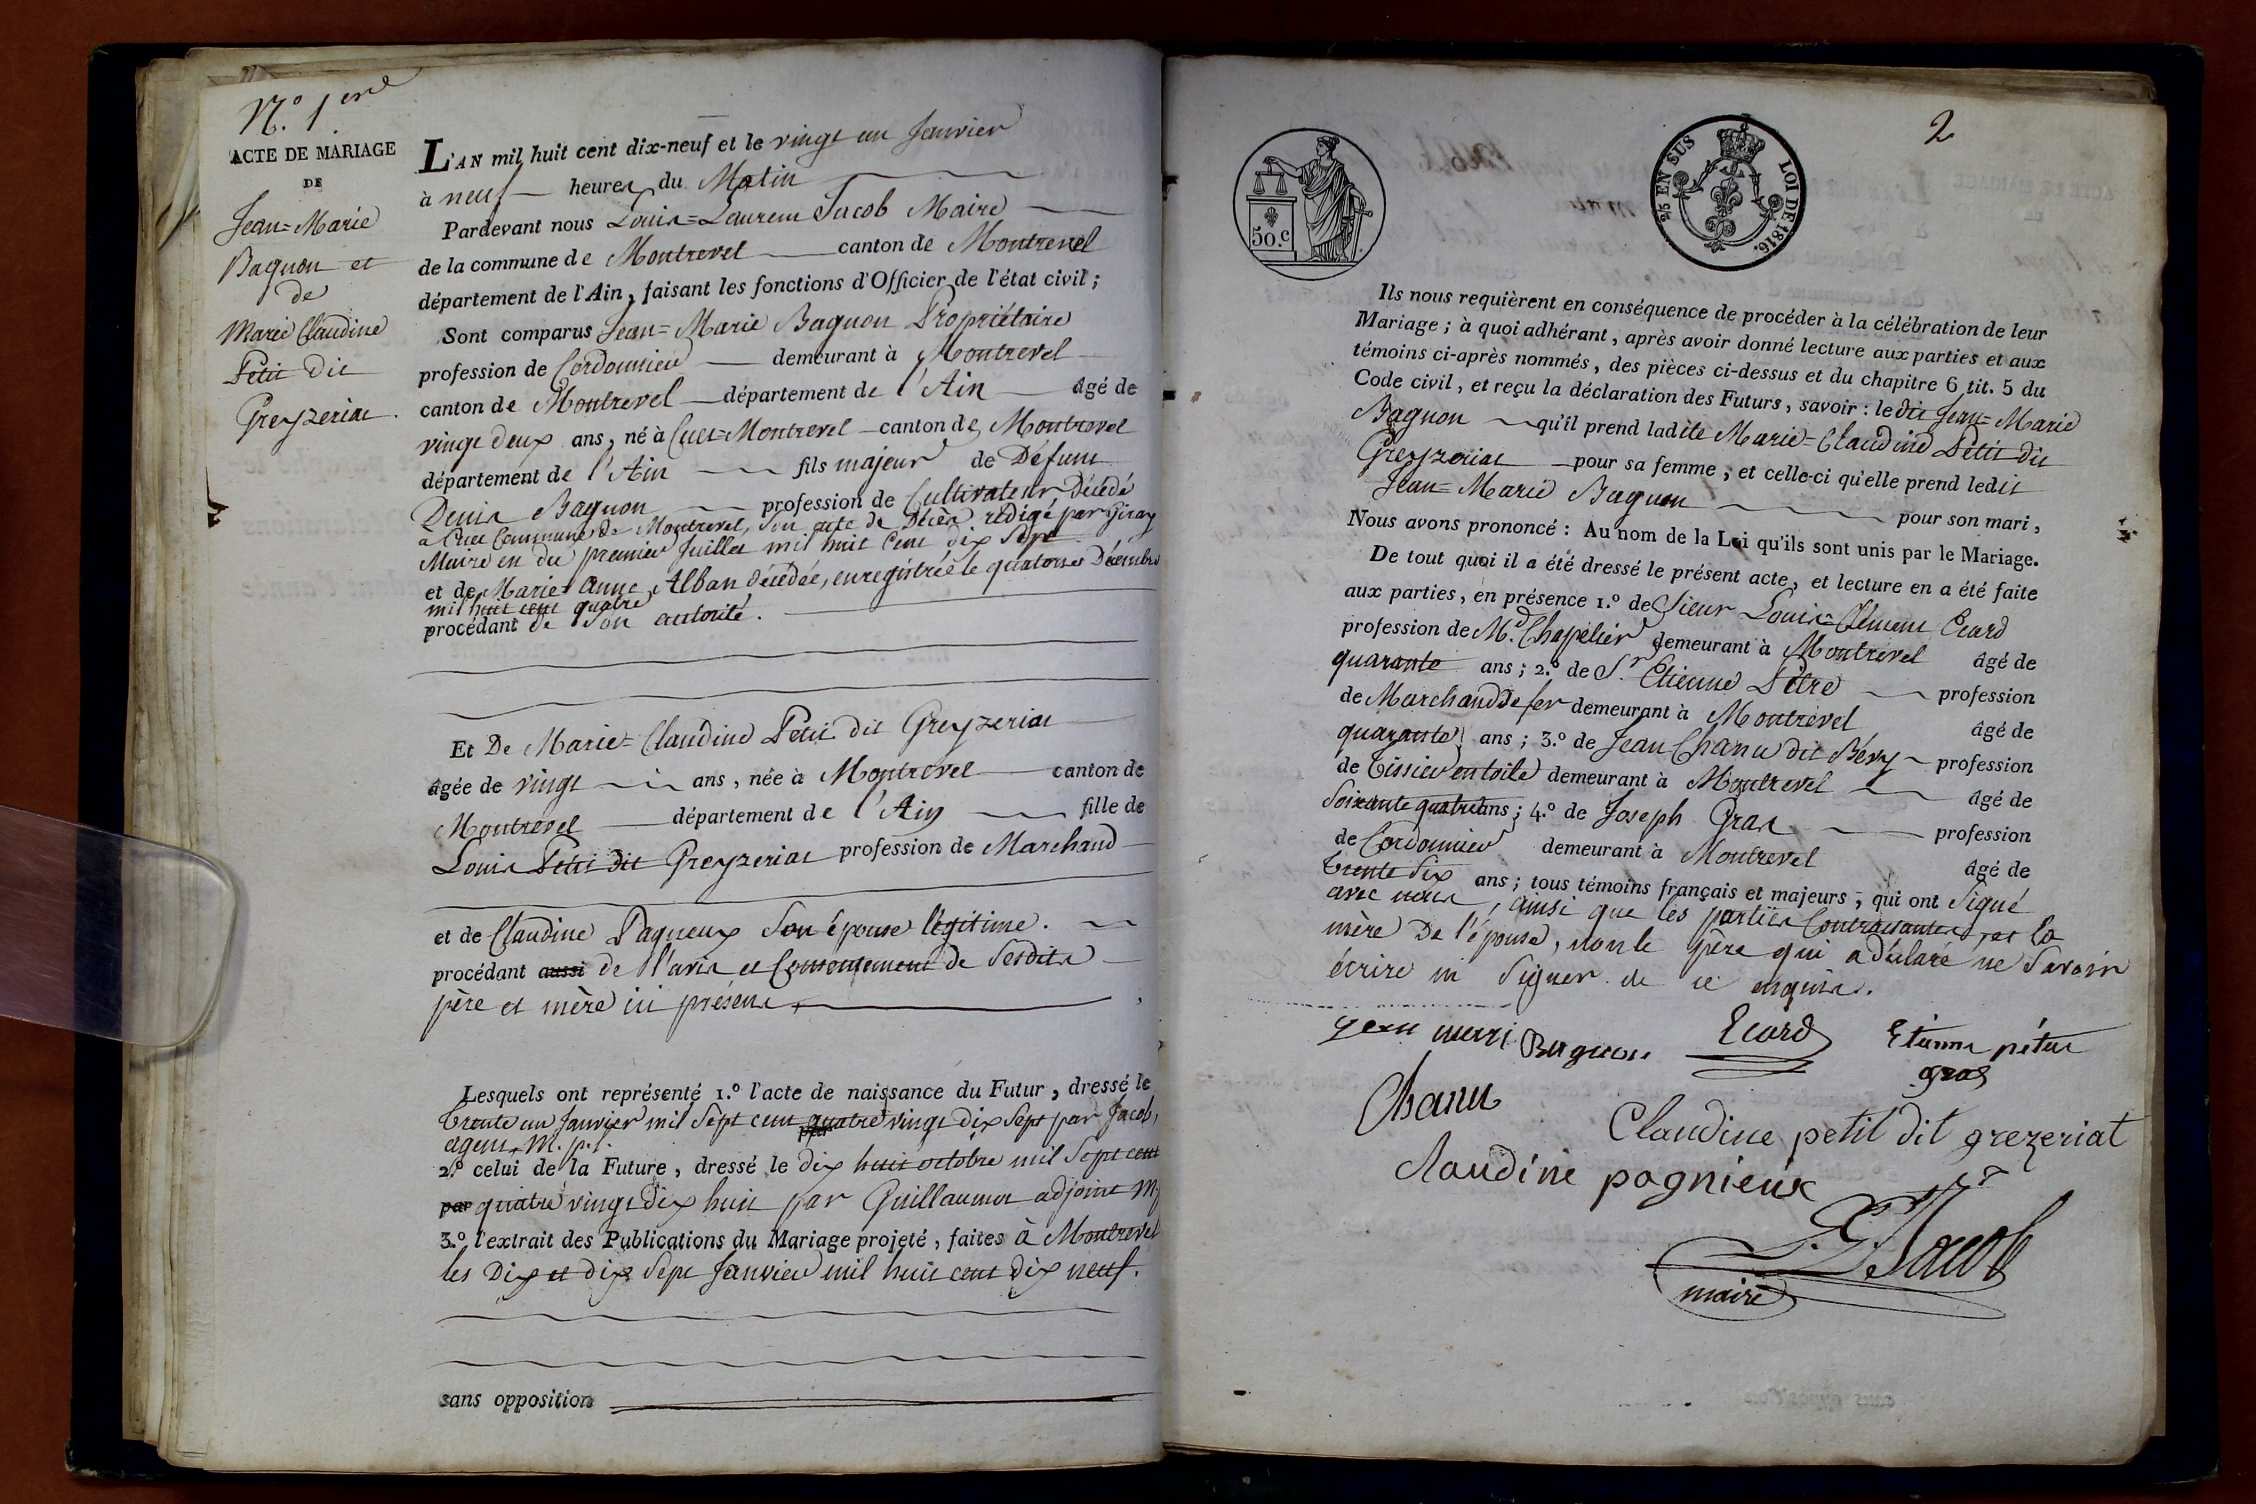 N.º 1ere
ACTE DE MARIAGE
DE
Jean=Marie
Baguon et
de
Marie Claudine
Petit dit
Greyzeriat.
L'AN mil huit cent dix-neuf et le vingt un Janvier
à neuf heures du Matin
Pardevant nous Louis=Laurent Jacob Maire
de la commune de Montrevel canton de Montrevel
département de l'Ain, faisant les fonctions d'Officier de l'état civil;
Sont comparus Jean=Marie Baguon Propriétaire
profession de Cordonnier demeurant à Montrevel
canton de Montrevel département de l'Ain âgé de
vingt deux ans, né à Cuet=Montrevel canton de Montrevel
département de l'Ain fils majeur de Défunt
Denis Baguon profession de Cultivateur Décédé
à Cuet Commune de Montrevel, Son acte de Décès rédigé par Giray
Maire en du premier Juillet mil huit Cent dix Sept
et de Marie=Anne Alban décédée, enregistrée le quatorze Décembre
mil huit cent quatre
procédant de Son autorité.
Et De Marie=Claudine Petit dit Greyzeriat
âgée de vingt ans, née à Montrevel canton de
Montrevel département de l'Ain fille de
Louis Petit dit Greyzeriat profession de Marchand
et de Claudine Paqueux Son épouse légitime.
procédant aussi de l'avis et Consentement de Sesdits
père et mère ici présens
Lesquels ont représenté 1.º l'acte de naissance du Futur, dressé le
trente un Janvier mil Sept cent quatre vingt dix Sept par Jacob,
agent M. p.l
2.º celui de la Future, dressé le dix huit octobre mil Sept cent
par quatre vingt dix huit par Guillaumot adjoint M.
3.º l'extrait des Publications du Mariage projeté, faites à Montrevel
les Dix et dix Sept Janvier mil huit cent dix neuf.
sans opposition
2
50.c
2/5 EN SUS LOI DE 1816.
Ils nous requièrent en conséquence de procéder à la célébration de leur
Mariage; à quoi adhérant, après avoir donné lecture aux parties et aux
témoins ci-après nommés, des pièces ci-dessus et du chapitre 6 tit. 5 du
Code civil, et reçu la déclaration des Futurs, savoir: le dit Jean=Marie
Baguon qu'il prend ladite Marie=Claudine Petit dit
Greyzeriat pour sa femme, et celle-ci qu'elle prend ledit
Jean=Marie Baguon pour son mari,
Nous avons prononcé: Au nom de la Loi qu'ils sont unis par le Mariage.
De tout quoi il a été dressé le présent acte, et lecture en a été faite
aux parties, en présence 1.º de Sieur Louis=Clément Ecard
profession de M.d Chapelier demeurant à Montrevel âgé de
quarante ans; 2.º de S.r Etienne Pêtre profession
de Marchand de fer demeurant à Montrevel âgé de
quarante ans; 3.º de Jean Chanu dit Bévy profession
de tissier en toile demeurant à Montrevel âgé de
Soixante quatre ans; 4.º de Joseph Gras profession
de Cordonnier demeurant à Montrevel âgé de
trente Six ans; tous témoins français et majeurs, qui ont Signé
avec nous, ainsi que les parties Contractantes, et la
mère De l'épouse, non le père qui a déclaré ne Savoir
écrire ni Signer de ce enquis.
Baguon Ecard Etienne pétre
gras
Chanu
Claudine petit dit grezeriat
claudine pagnieux
L. L. Jacob
maire